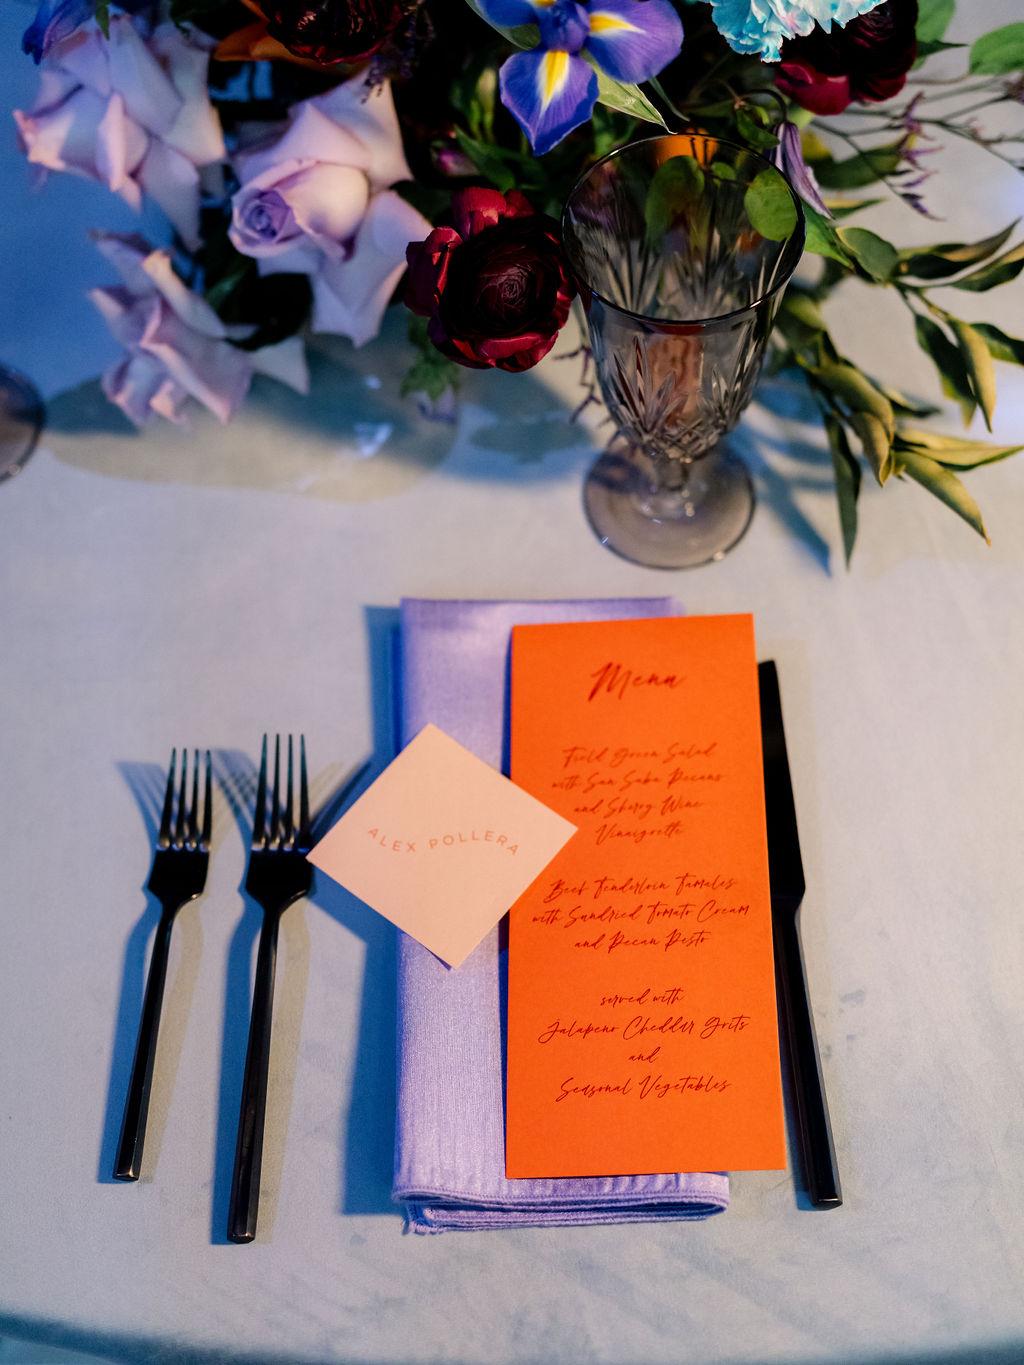 Menu
Field Green Salad
with San Saba Pecans
and Sherry Wine
Vinaigrette
Beef Tenderloin Tamales
with Sundried Tomato Cream
and Pecan Pesto
served with
Jalapeno Cheddar Grits
and
Seasonal Vegetables
ALEX POLLERA